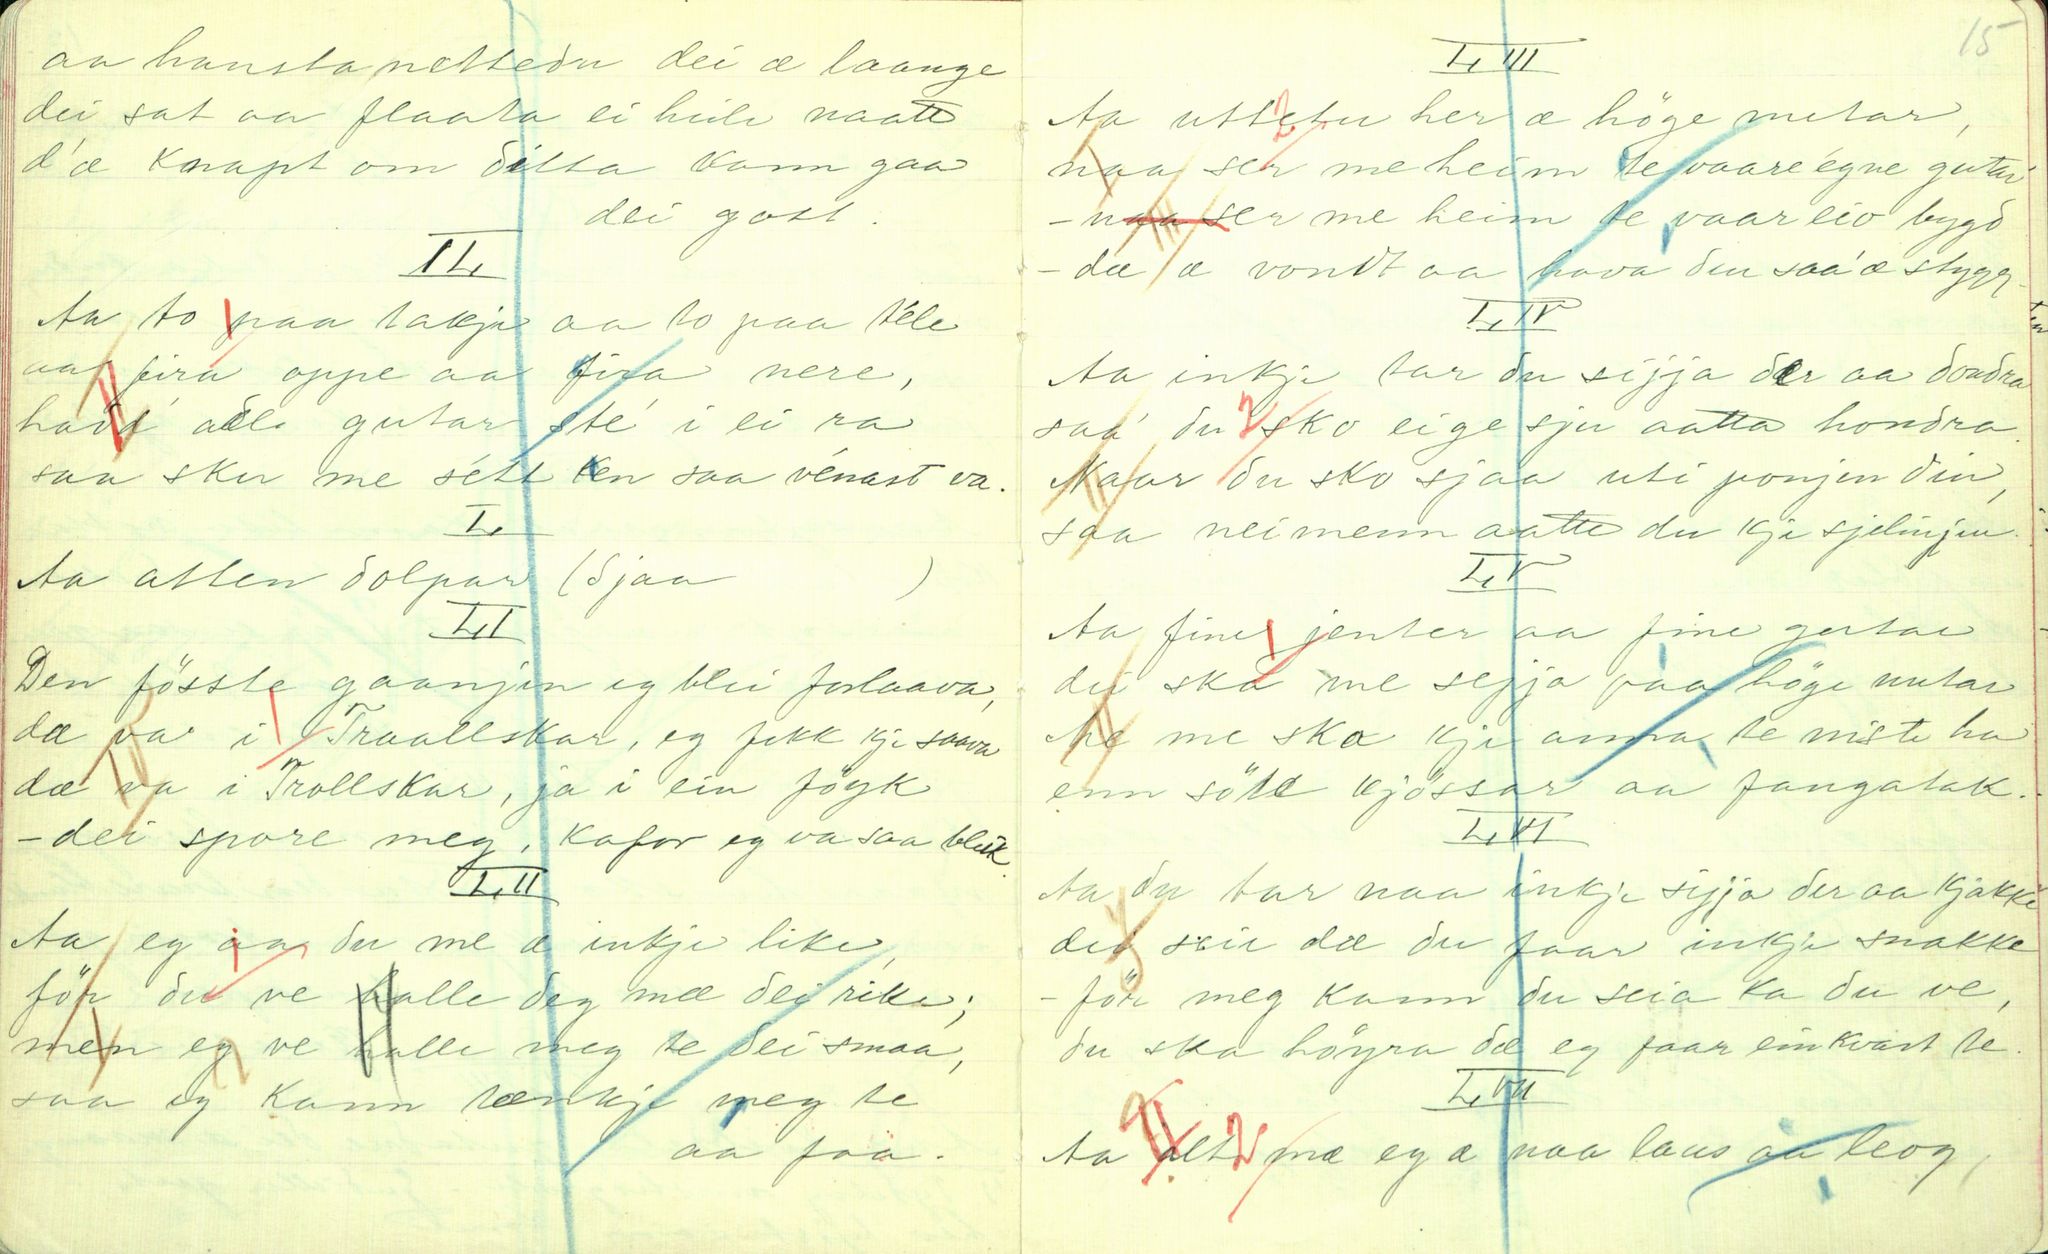 aa haustanettedn dei æ laange
dei sat aa flaata ei heile naatt
d'æ knapt om ditta kann gaa
dei gost.
IL
Aa to paa takje aa to paa tele
aa fira oppe aa fira nere,
hadi adle gutar sté i ei ra
saa sku me sétt ken saa vénast va.
L
Aa atten dolpar (djaa )
LI
Den fösste gaanjin eg blei forlaava,
dæ va i Traallskar, eg fekk kje saava
dæ va i Trollskar, ja i ein föyk
- dei spore meg, kafor eg va saa bleik.
LII
Aa eg aa du me æ inkje like,
för du ve halle deg mæ dei rike;
men eg ve halle meg te dei smaa,
saa eg kann tænkje meg te
aa faa.
15
LIII
Aa uttetu her æ höge nutar,
naa ser me heim te vaare egne gutar
- naa ser me heim te vaar eio bygd
- dæ æ vondt aa hava den saa æ stygg
LIV
Aa inkje tar du sijja der aa dondra
saa du sko eige sju aatta hondra.
Naar du sko sjaa uti ponjen din,
saa neimenn aatte du kje sjelinjen.
LV
Aa fine jenter aa fine gutar
dei ska me sejja paa höge nutar
me ska kje anna te niste ha
enn söte kjössar aa fangatak.
LVI
Aa du tar naa inkje sijja der aa kjakke
dei seie dæ du faar inkje snakke
- för meg kann du seia ka du ve,
du ska höyra dæ eg faar einkvart te.
LVII
Aa alt mæ eg æ naa laus aa leog,